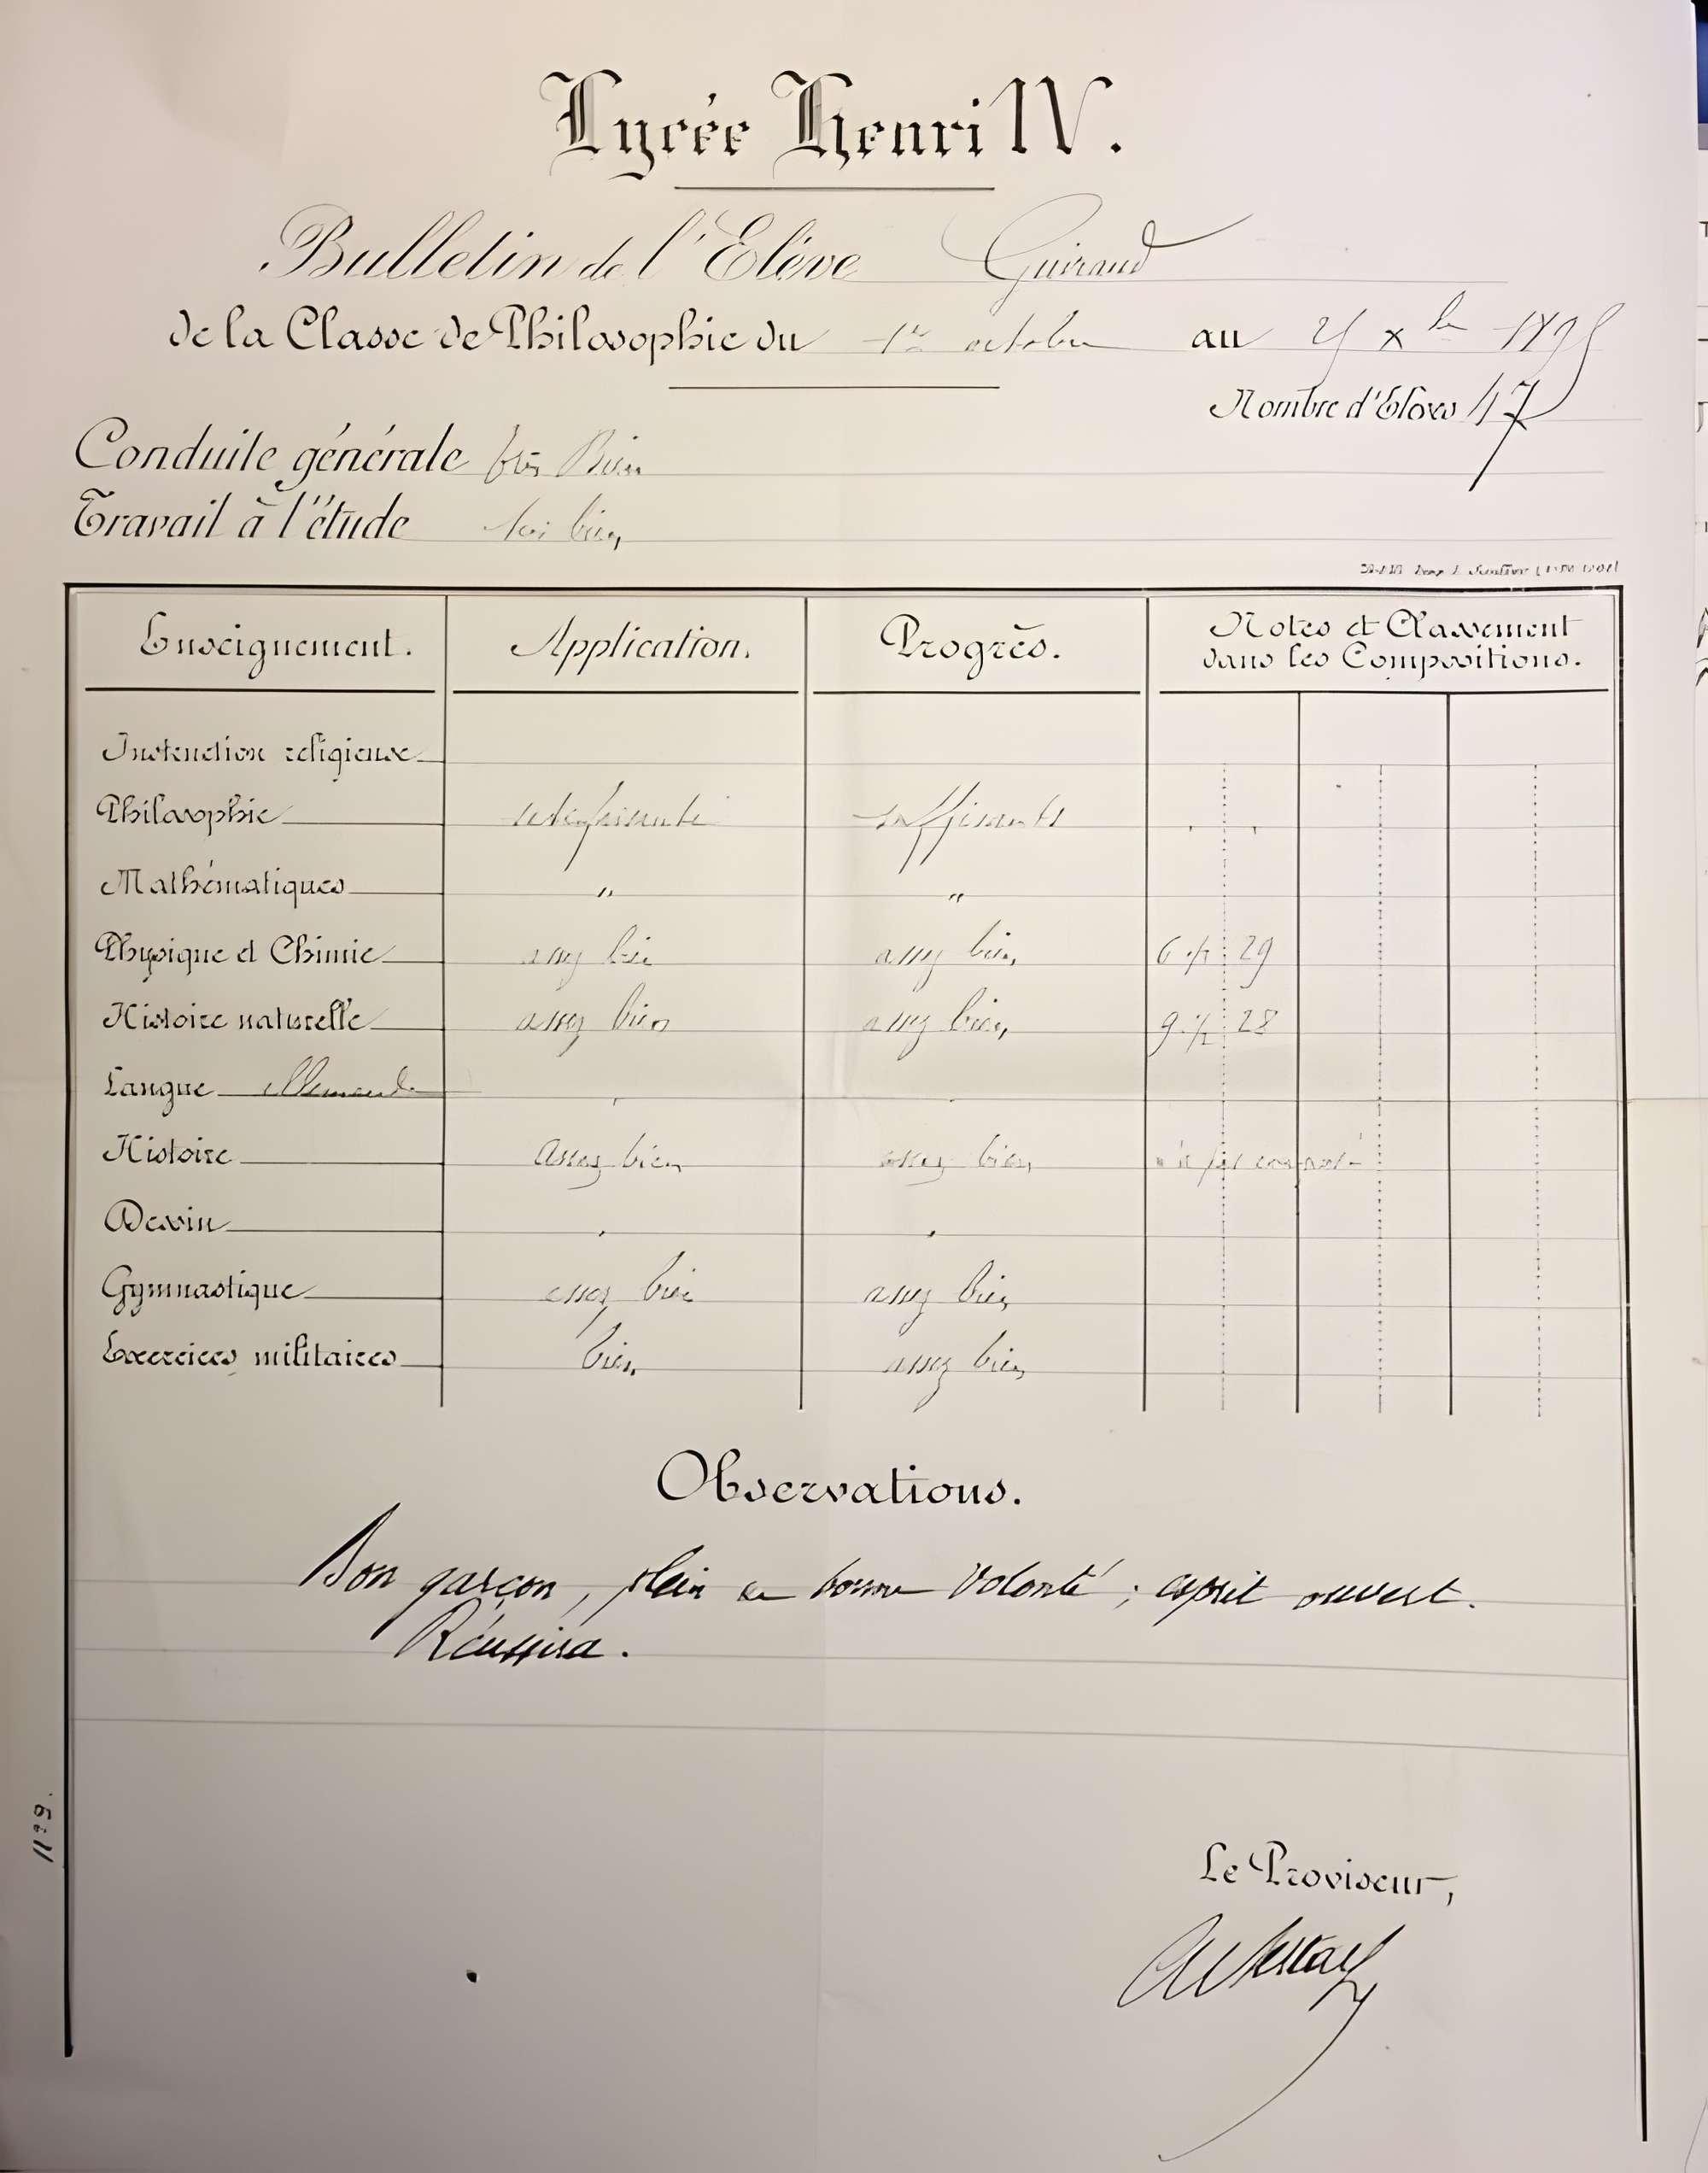 Lycée Henri IV.
Bulletin de l'Elève Guiraud
de la Classe de Philosophie du 1er octobre au 25 xbre 1895
Nombre d'Elèves 47
Conduite générale très Bien
Travail à l'étude très bien
Enseignement. Application. Progrès. Notes et Classement
dans les Compositions.
Instruction religieuse
Philosophie satisfaisante suffisants
Mathématiques " "
Physique et Chimie assez bien assez bien 6 ½ 29
Histoire naturelle assez bien assez bien 9 ½ 28
Langue allemande
Histoire assez bien assez bien n'a pas composé
Dessin
Gymnastique assez bien assez bien
Exercices militaires bien assez bien
Observations.
Bon garçon, plein de bonne volonté ; esprit ouvert.
Réussira.
Le Proviseur,